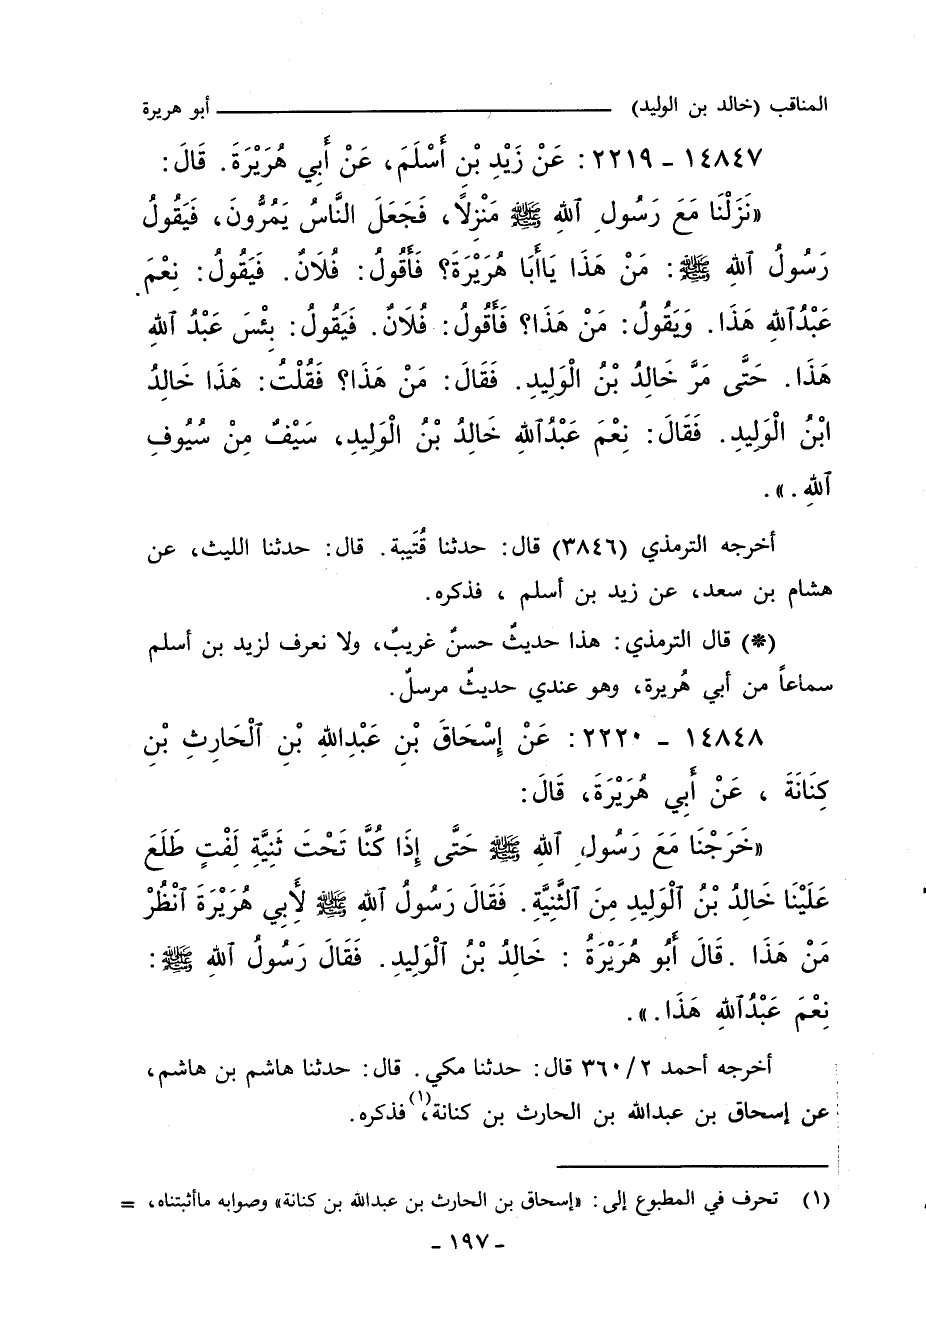 المناقب (خالد بن الوليد) ــــــــ أبو هريرة
١٤٨٤٧ - ٢٢١٩ : عَنْ زَيْدِ بْنِ أَسْلَمَ، عَنْ أَبِي هُرَيْرَةَ. قَالَ:
«نَزَلْنَا مَعَ رَسُولِ ٱللهِ ﷺ مَنْزِلاً، فَجَعَلَ النَّاسُ يَمُرُّونَ، فَيَقُولُ
رَسُولُ ٱللهِ ﷺ: مَنْ هَذَا يَاأَبَا هُرَيْرَةَ؟ فَأَقُولُ: فُلَانٌ. فَيَقُولُ: نِعْمَ
عَبْدُٱللهِ هَذَا. وَيَقُولُ: مَنْ هَذَا؟ فَأَقُولُ: فُلَانٌ. فَيَقُولُ: بِئْسَ عَبْدُ ٱللهِ
هَذَا. حَتَّى مَرَّ خَالِدُ بْنُ الْوَلِيدِ. فَقَالَ: مَنْ هَذَا؟ فَقُلْتُ: هَذَا خَالِدُ
ابْنُ الْوَلِيدِ. فَقَالَ: نِعْمَ عَبْدُٱللهِ خَالِدُ بْنُ الْوَلِيدِ، سَيْفٌ مِنْ سُيُوفِ
ٱللهِ.».
أخرجه الترمذي (٣٨٤٦) قال: حدثنا قُتَيبة. قال: حدثنا الليث، عن
هشام بن سعد، عن زيد بن أسلم ، فذكره.
(*) قال الترمذي: هذا حديثٌ حسنٌ غريبٌ، ولا نعرف لزيد بن أسلم
سماعاً من أبي هُريرة، وهو عندي حديثٌ مرسلٌ.
١٤٨٤٨ - ٢٢٢٠ : عَنْ إِسْحَاقَ بْنِ عَبْدِاللهِ بْنِ ٱلْحَارِثِ بْنِ
كِنَانَةَ ، عَنْ أَبِي هُرَيْرَةَ، قَالَ:
«خَرَجْنَا مَعَ رَسُولِ ٱللهِ ﷺ حَتَّى إِذَا كُنَّا تَحْتَ ثَنِيَّةِ لِفْتٍ طَلَعَ
عَلَيْنَا خَالِدُ بْنُ ٱلْوَلِيدِ مِنَ ٱلثَّنِيَّةِ. فَقَالَ رَسُولُ ٱللهِ ﷺ لأَبِي هُرَيْرَةَ ٱنْظُرْ
مَنْ هَذَا .قَالَ أَبُو هُرَيْرَةُ : خَالِدُ بْنُ ٱلْوَلِيدِ. فَقَالَ رَسُولُ ٱللهِ ﷺ:
نِعْمَ عَبْدُٱللهِ هَذَا.».
أخرجه أحمد ٢/ ٣٦٠ قال: حدثنا مكي. قال: حدثنا هاشم بن هاشم،
عن إسحاق بن عبدالله بن الحارث بن كنانة،(١) فذكره.
(١) تحرف في المطبوع إلى: «إسحاق بن الحارث بن عبدالله بن كنانة» وصوابه ماأثبتناه، =
- ١٩٧ -